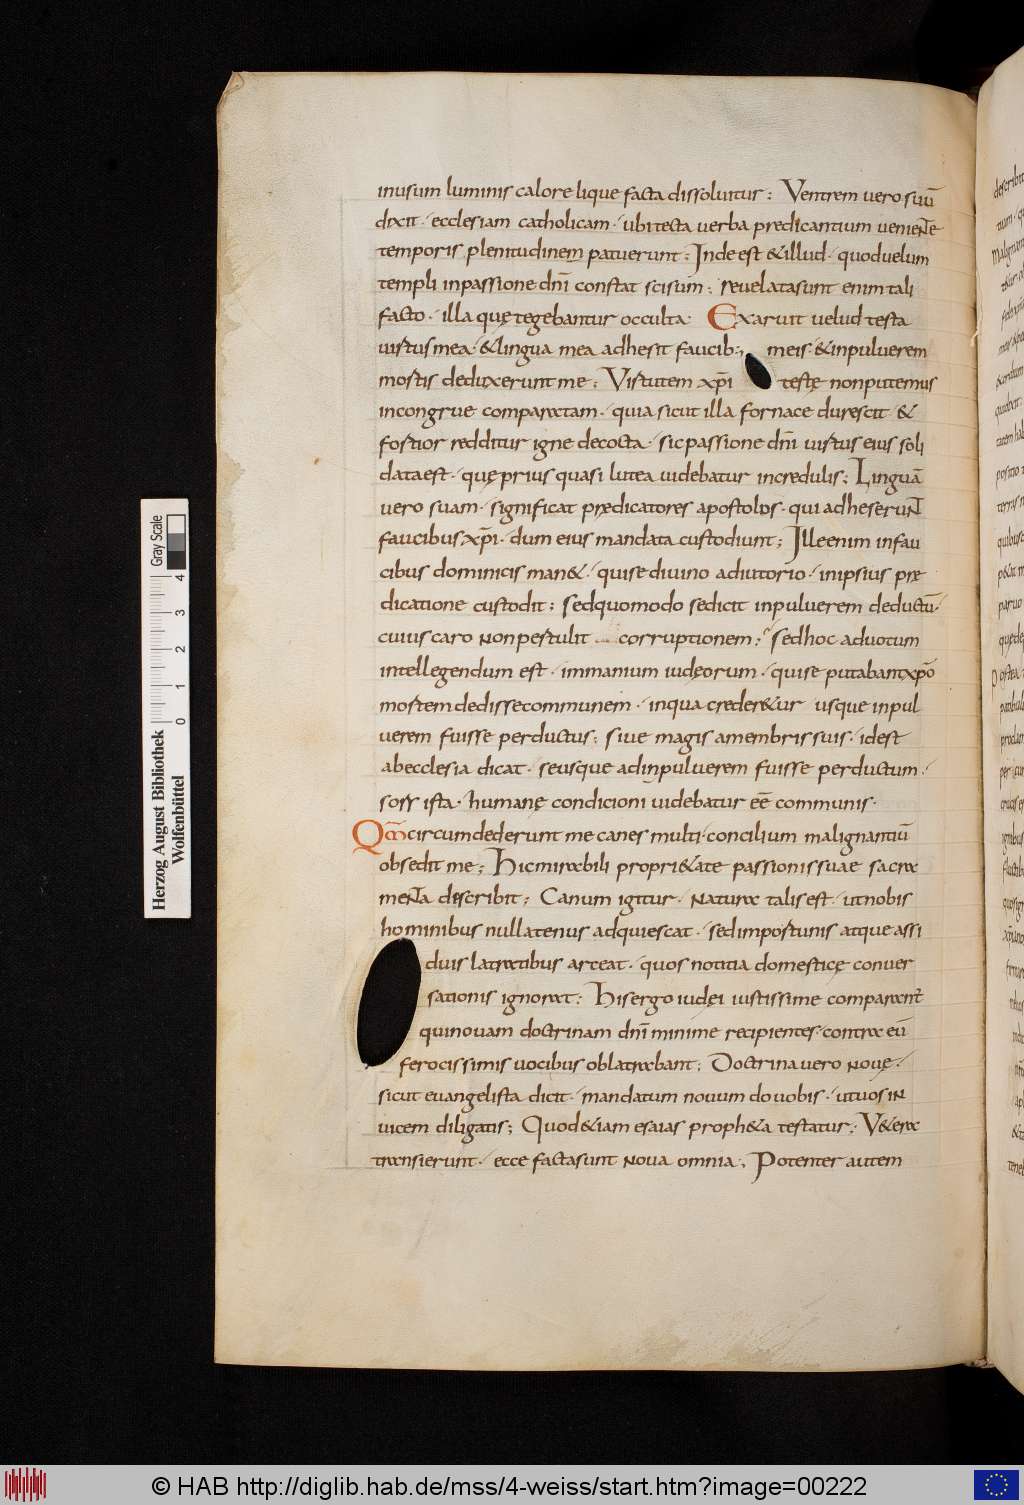 inusum luminis calore lique facta dissoluitur: Ventrem uero suū
dixit· ecclesiam catholicam· ubi tecta uerba predicantium uenieNte
temporis plenitudinem patuerunt: Inde est &illud· quod uelum
templi inpassione dn̄i constat scisum: reuelata sunt enim tali
facto· illa quę tegebantur occulta· Exaruit uelud testa
uirtus mea· &lingua mea adhesit faucib; meis· &inpuluerem
mortis deduxerunt me: Virtutem xp̄i testę non putemus
incongrue comparatam· quia sicut illa fornace durescit· &
fortior redditur igne decocta· sic passione dn̄i uirtus eius soli
data est· quę prius quasi lutea uidebatur incredulis; Linguā
uero suam· significat prędicatores apostolos· qui adheseruNt
faucibus xp̄i· dum eius mandata custodiunt; Ille enim infau
cibus dominicis man&· qui se diuino adiutorio· inipsius prę
dicatione custodit: sed quomodo se dicit inpuluerem deductū·
cuius caro non pertulit corruptionem: sed hoc ad uotum
intellegendum est· immanium iudęorum· qui se putabant xp̄o
mortem dedisse communem· inqua creder&ur usque inpul
uerem fuisse perductus: siue magis a membris suis· id est
ab ecclesia dicat· se usque adinpuluerem fuisse perductum·
sors ista· humanę condicioni uidebatur eē communis·
Qm̄ circumdederunt me canes multi· concilium malignantiū
obsedit me; Hic mirabili propri&ate passionis suae sacra
meNta describit; Canum igitur· natura talis est· ut nobis
hominibus nullatenus adquiescat· sed importunis atque assi
duis latratibus arceat· quos notitia domesticę conuer
sationis ignorat: His ergo iudęi iustissime comparant᷑
qui nouam doctrinam dn̄i minime recipientes· contra eū
ferocissimis uocibus oblatrabant; Doctrina uero nouę·
sicut euangelista dicit· mandatum nouum do uobis· ut uos in
uicem diligatis; Quod &iam esaias proph&a testatur; V&era
transierunt· ecce facta sunt noua omnia; Potenter autem
Herzog August Bibliothek
Wolfenbüttel
0 1 2 3 4
Gray Scale
© HAB http://diglib.hab.de/mss/4-weiss/start.htm?image=00222